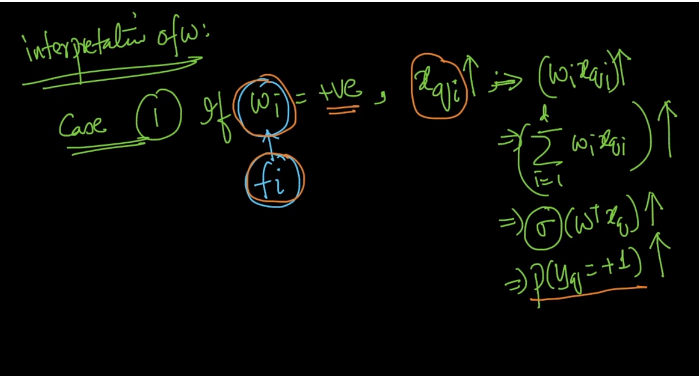 interpretation of w:
Case 1 If wi = +ve, xqi ↑ => (wi xqi)↑
fi
=> (∑_{i=1}^{d} wi xqi) ↑
=> σ(wᵀxq) ↑
=> P(yq = +1) ↑